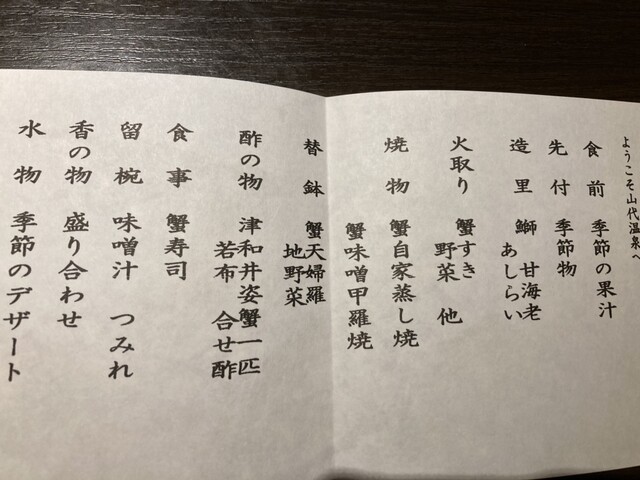 ようこそ山代温泉へ
食前 季節の果汁
先付 季節物
造里 鰤 甘海老
あしらい
火取り 蟹すき
野菜 他
焼物 蟹自家蒸し焼
蟹味噌甲羅焼
替鉢 蟹天婦羅
地野菜
酢の物 津和井姿蟹一匹
若布 合せ酢
食事 蟹寿司
留椀 味噌汁 つみれ
香の物 盛り合わせ
水物 季節のデザート